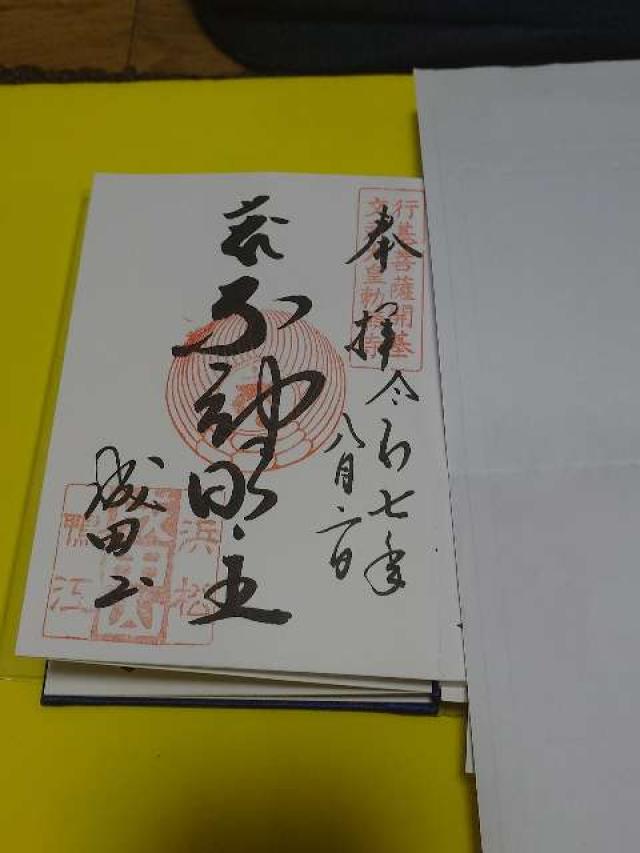 行基菩薩開基
文武天皇勅願寺
奉拝
令和七年
八月二日
不動明王
浜松
鴨江
成田山
成田山